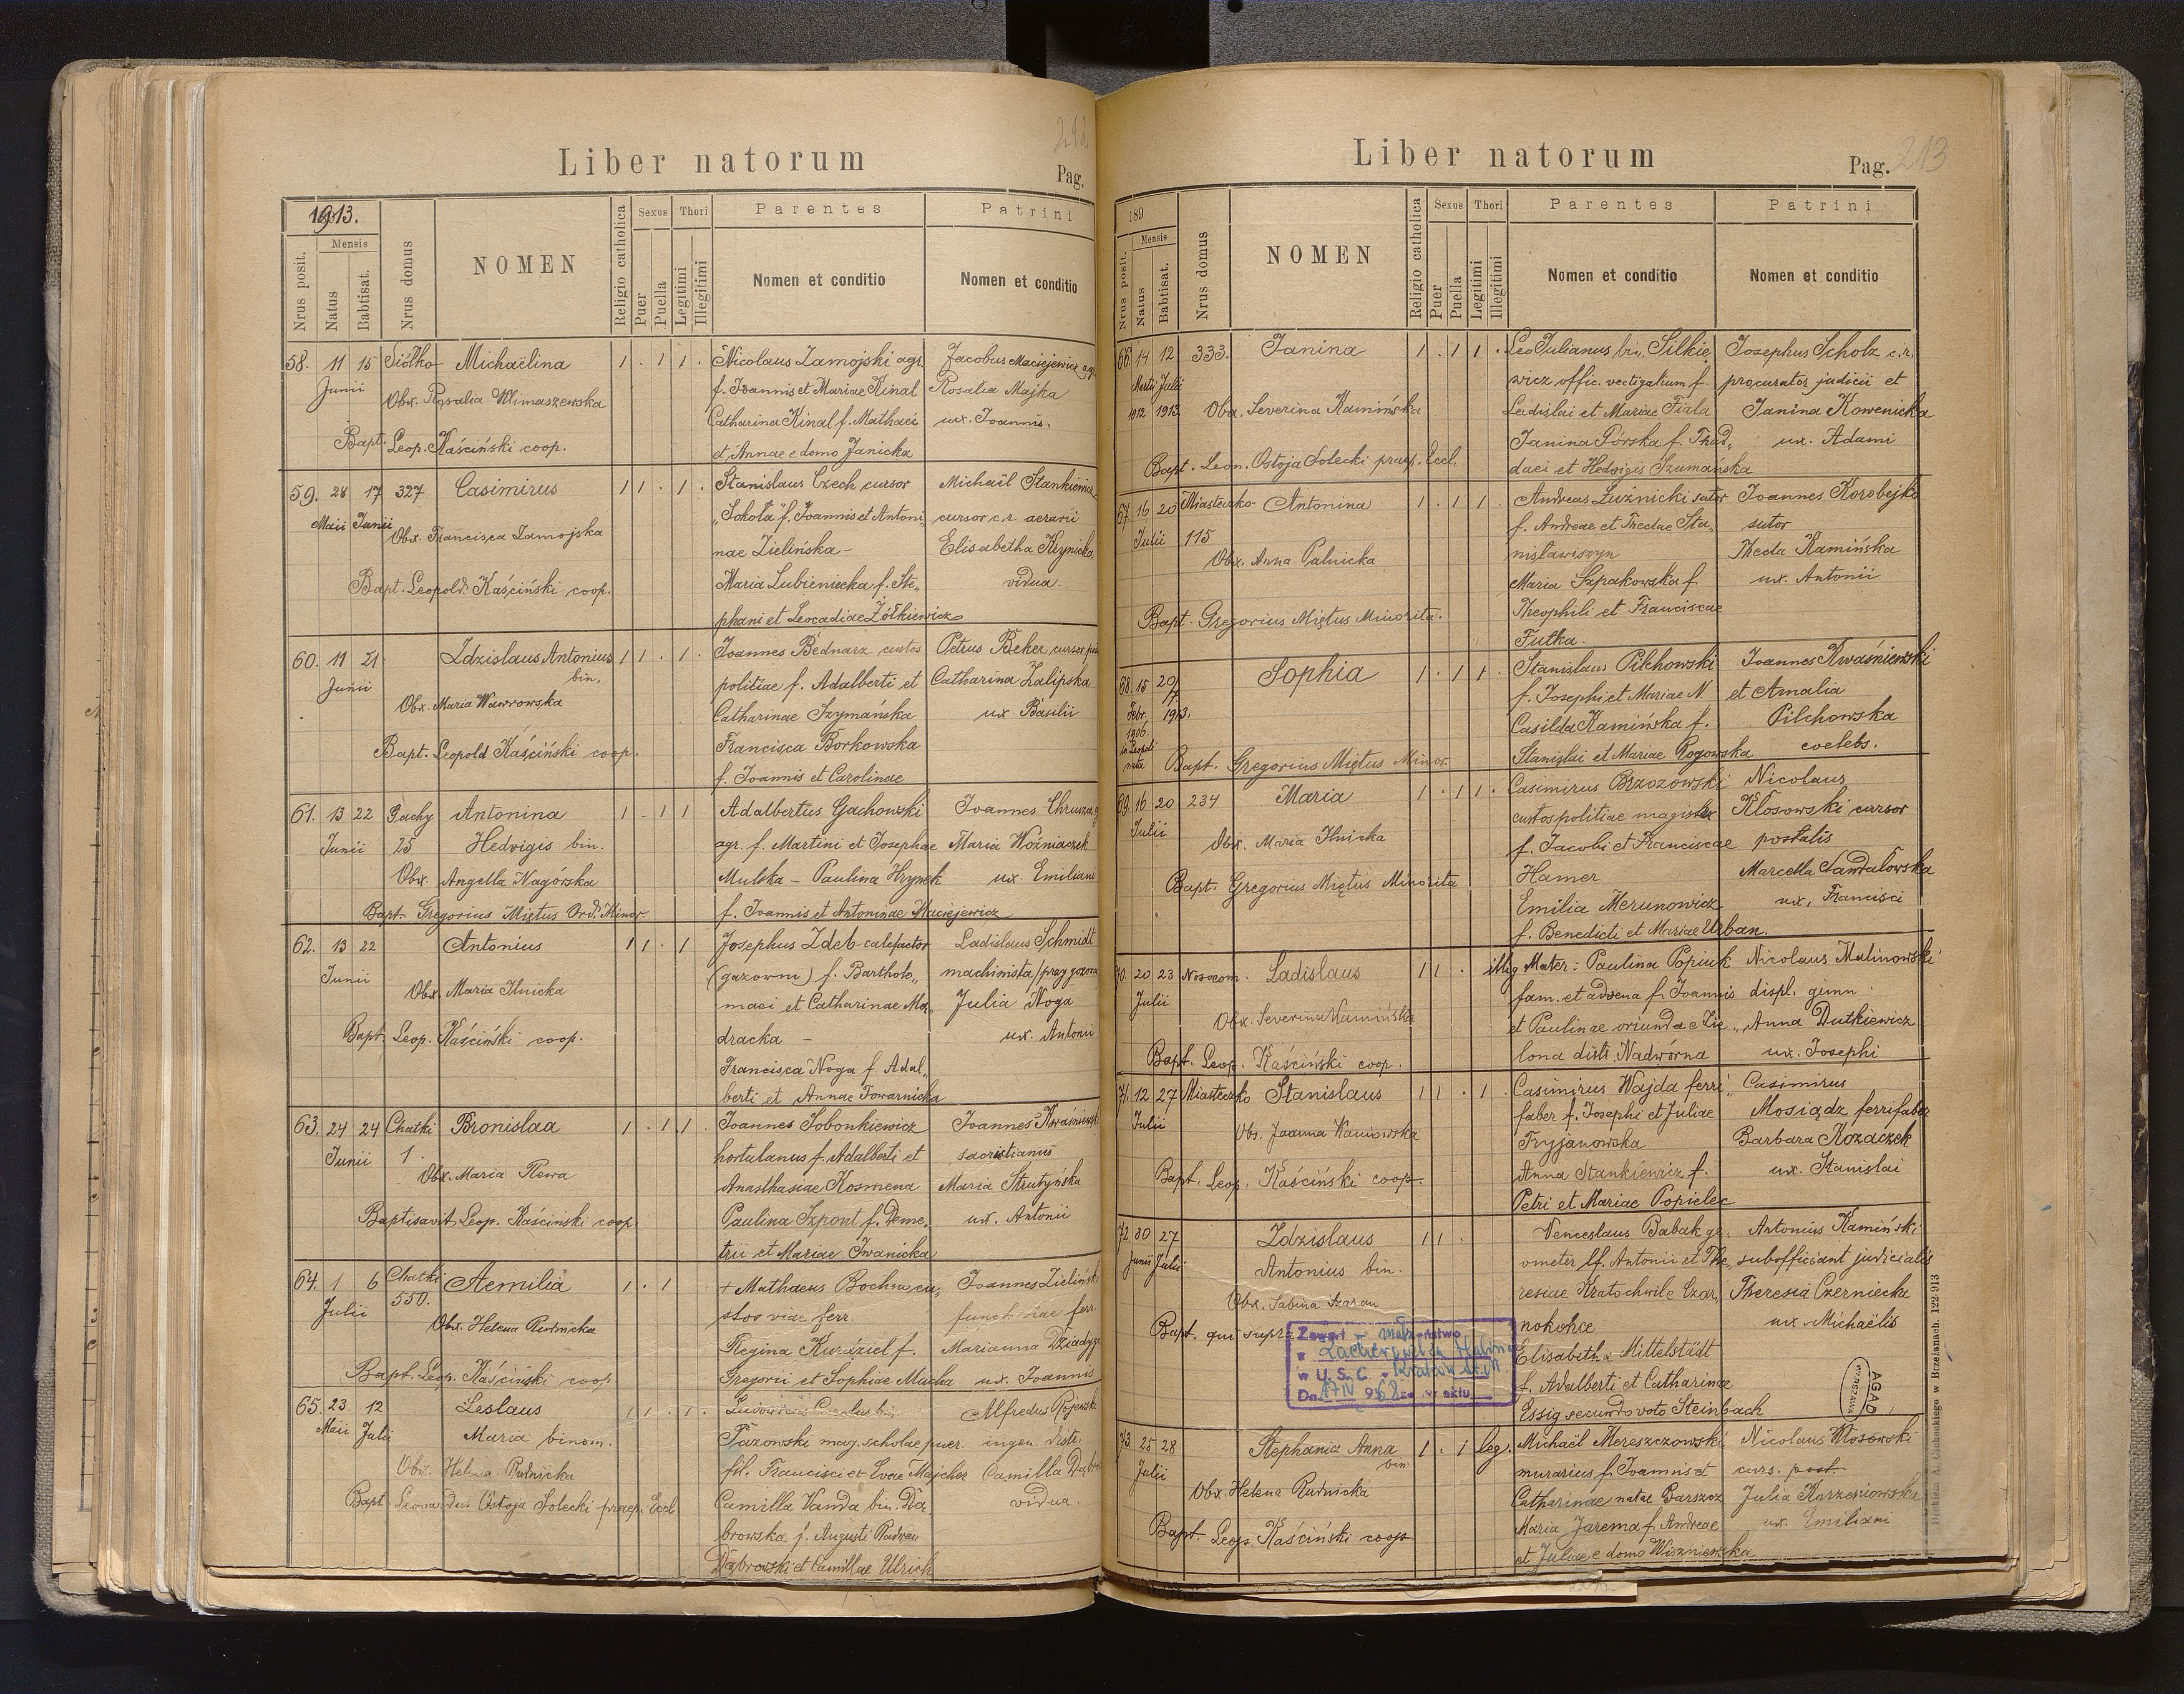 Liber natorum
Pag. 212
1913.
Nrus posit.
Mensis
Natus
Babtisat.
Nrus domus
NOMEN
Religio catholica
Sexus
Puer
Puella
Thori
Legitimi
Illegitimi
Parentes
Nomen et conditio
Patrini
Nomen et conditio
58. 11 15 Siółko Michaëlina 1 . 1 1 . Nicolaus Zamojski agr. Jacobus Maciejewicz agr.
Junii f. Joannis et Mariae Kinal Rosalia Majka
Obx. Rosalia Klimaszewska Catharina Kinal f. Mathaei ux. Joannis.
Bapt. Leop. Kaściński coop. et Annae e domo Janicka
59. 28 17 327 Casimirus 1 1 . 1 . Stanislaus Czech cursor Michaël Stankiewicz
Maii Junii „Sokoła" f. Joannis et Antoni„ cursor c.r. aerarii
Obx. Francisca Zamojska nae Zielińska - Elisabetha Krynicka
Bapt. Leopold. Kaściński coop. Maria Lubieniecka f. Ste„ vidua.
phani et Leocadiae Żółkiewicz
60. 11 21 Zdzislaus Antonius 1 1 . 1 . Joannes Bednarz custos Petrus Beker cursor
bin.
Junii politiae f. Adalberti et Catharina Zalipska
Obx. Maria Wawrowska Catharinae Szymańska ux. Basilii
Bapt. Leopold Kaściński coop. Francisca Borkowska
f. Joannis et Carolinae
61. 13 22 Gachy Antonina 1 . 1 1 Adalbertus Gachowski Joannes
Junii 25 Hedvigis bin. agr. f. Martini et Josephae Maria Woźniaczek
Obx. Angella Nagórska Mulska - Paulina Hrynek ux. Emiliani
Bapt. Gregorius Miętus Ord. Minor. f. Joannis et Antoninae Maciejewicz
62. 13 22 Antonius 1 1 . 1 Josephus Zdeb calefactor Ladislaus Schmidt
Junii (gazowni) f. Bartholo„ machinista
Obx. Maria Ilnicka maei et Catharinae Ma„ Julia Noga
Bapt. Leop. Kaściński coop. dracka - ux. Antonii
Francisca Noga f. Adal„
berti et Annae Towarnicka
63. 24 24 Chatki Bronislaa 1 . 1 1 . Joannes Sobonkiewicz Joannes Kwaśniewski
Junii 1. hortulanus f. Adalberti et sacristianus
Obx. Maria Rewa Anasthasiae Kosmena Maria Strutyńska
Baptisavit Leop. Kaściński coop. Paulina Szpont f. Deme„ ux. Antonii
trii et Mariae Iwanicka
64. 1 6 Chatki Aemilia 1 . 1 + Mathaeus Bochna cu„ Joannes Zieliński
Julii 550. stos viae ferr. funct. viae ferr.
Obx. Helena Rudnicka Regina f. Marianna
Bapt. Leop. Kaściński coop Gregorii et Sophiae Mucha ux. Joannis
65. 23 12 Leslaus 1 1 . 1 . Alfredus
Maii Julii Maria binom. mag. scholae puer. ingen. distr.
Obx. Helena Rudnicka fil. Francisci et Evae Majcher Camilla
Bapt. Leonardus Ostoja Solecki praep. Eccl Camilla Vanda bin. Dą„ vidua.
browska f. Augusti Radwan
Dąbrowski et Camillae Ulrich
Liber natorum
Pag. 213
189
Nrus posit.
Mensis
Natus
Babtisat.
Nrus domus
NOMEN
Religio catholica
Sexus
Puer
Puella
Thori
Legitimi
Illegitimi
Parentes
Nomen et conditio
Patrini
Nomen et conditio
66. 14 12 333. Janina 1 . 1 1 . Leo Julianus bin. Silkie„ Josephus Scholz c.r.
Martii Julii wicz offic. vectigalium f. procurator judicii et
1912 1913. Obx. Severina Kamińska Ladislai et Mariae Fiala Janina Kowenicka
Janina Górska f. Thad„ ux. Adami
Bapt. Leon. Ostoja Solecki praep. Eccl. daei et Hedvigis Szumańska
67. 16 20 Miasteczko Antonina 1 . 1 1 . Andreas Łużnicki sutor Joannes Korobejko
Julii 115 f. Andreae et Theclae Sta„ sutor
Obx. Anna Palnicka nisławiszyn Thecla Kamińska
Maria Szpakowska f. ux. Antonii
Bapt. Gregorius Miętus Minorita. Theophili et Franciscae
Futka.
68. 15 20/7 Sophia 1 . 1 1 . Stanislaus Pilchowski Joannes Kwaśniewski
Febr. 1913. f. Josephi et Mariae N. et Amalia
1906. Casilda Kamińska f. Pilchowska
in Leopoli nata Bapt. Gregorius Miętus Minor. Stanislai et Mariae Rogowska coelebs.
69. 16 20 234 Maria 1 . 1 1 . Casimirus Brzozowski Nicolaus
Julii custos politiae Kłosowski cursor
Obx. Maria Ilnicka f. Jacobi et Franciscae postalis
Bapt. Gregorius Miętus Minorita Hamer Marcella Sandałowska
Emilia Merunowicz ux. Francisci
f. Benedicti et Mariae Urban.
70. 20 23 Nosocom. Ladislaus 1 1 . illeg Mater: Paulina Popiuk Nicolaus Malinowski
Julii fam. et advena f. Joannis displ. gimn
Obx. Severina Kamińska et Paulinae oriunda e Zie„ Anna Dutkiewicz
Bapt. Leop. Kaściński coop. lona distr. Nadwórna ux. Josephi
71. 12 27 Miasteczko Stanislaus 1 1 . 1 . Casimirus Wajda ferri„ Casimirus
Julii faber f. Josephi et Juliae Mosiądz ferrifaber
Obs. Joanna Kaniowska Fryjanowska Barbara Kozaczek
Bapt. Leop. Kaściński coop. Anna Stankiewicz f. ux. Stanislai
Petri et Mariae Popielec
72. 30 27 Zdzislaus 1 1 . Venceslaus Babak ge„ Antonius Kamiński
Junii Julii Antonius bin. ometer f. Antonii et The„ subofficiant judicialis
Obx. Sabina Szaran resiae Kratochwil e Czar„ Theresia Czerniecka
Bapt. qui supra nokońce ux Michaëlis
Elisabetha Mittelstädt
f. Adalberti et Catharinae
Essig secundo voto Steinbach
Zawarł małżeństwo
z
w U.S.C. Kraków
Dn. 17 IV 1962
AGAD
WARSZAWA
73. 25 28 Stephania Anna 1 . 1 leg. Michaël Mereszczowski Nicolaus Kłosowski
Julii bin murarius f. Joannis et curs. post.
Obx. Helena Rudnicka Catharinae natae Barszcz Julia Korzeniowska
Bapt. Leop. Kaściński coop Maria Jarema f. Andreae ux. Emiliani
et Juliae e domo Wiszniewska
w Brzeżanach. 122-913